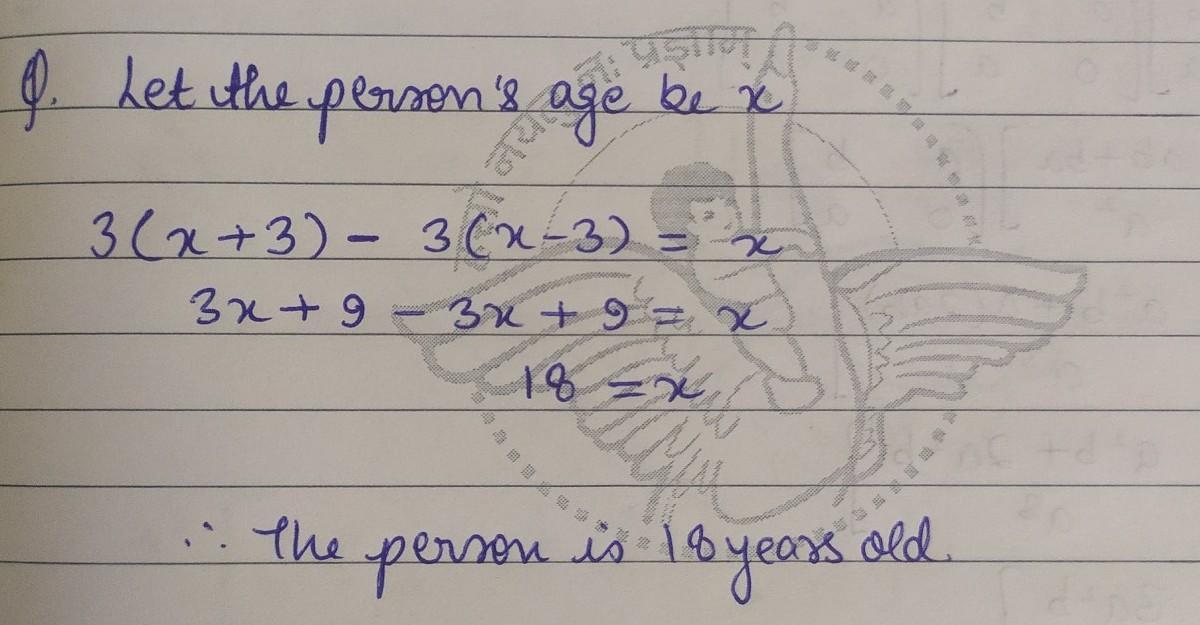 Q. Let the person's age be x
3(x+3) - 3(x-3) = x
3x + 9 - 3x + 9 = x
18 = x
∴ The person is 18 years old.